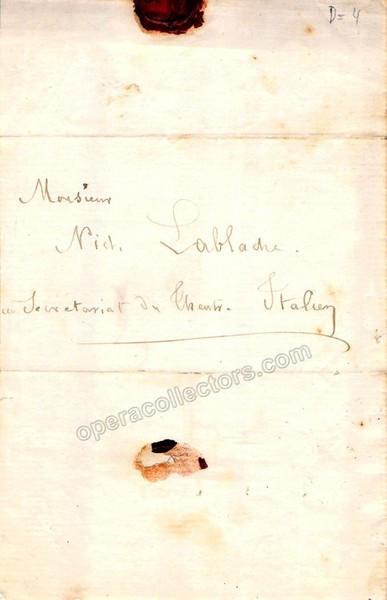 D= 4
Monsieur
Nich. Lablache.
au Secretariat du Theatre. Italien
operacollectors.com